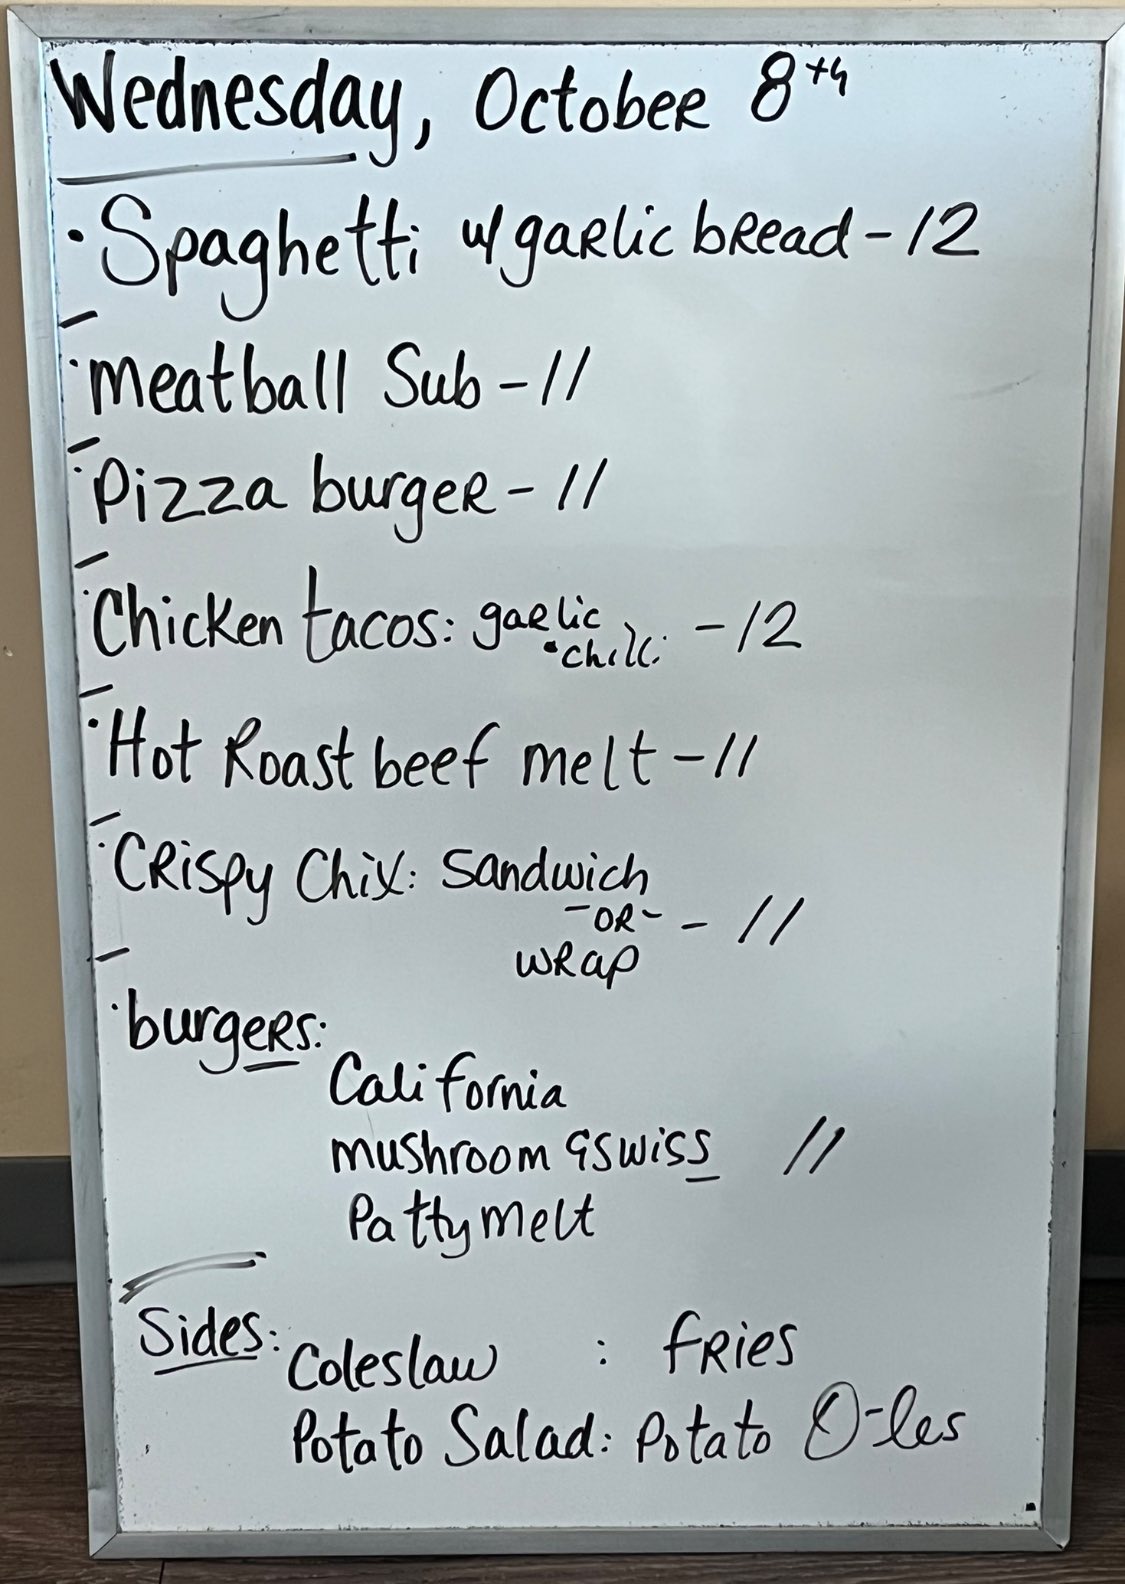 Wednesday, October 8th
• Spaghetti w/ garlic bread - 12
• Meatball Sub - 11
• Pizza burger - 11
• Chicken tacos: garlic - 12
• chili:
• Hot Roast beef melt - 11
• Crispy Chix: Sandwich
- OR - - 11
wrap
• burgers:
California
mushroom & swiss 11
Patty melt
Sides:
Coleslaw : fries
Potato Salad: Potato O-les